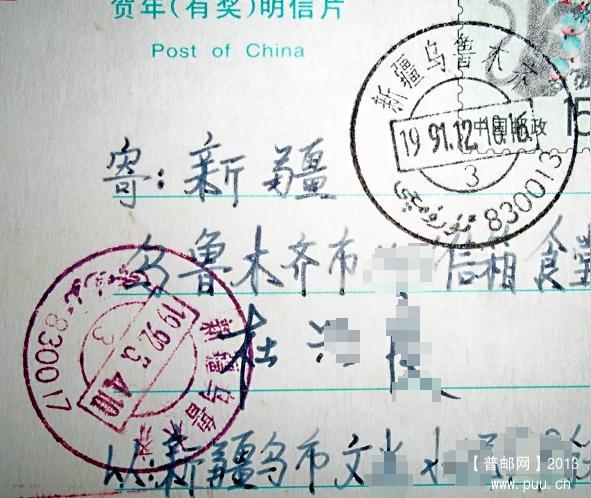 贺年(有奖)明信片
Post of China
新疆乌鲁木齐
1991.12.1
中国邮政
3
ئۈرۈمچى 830013
15
寄:新疆
乌鲁木齐市 信箱食堂
杜
新疆乌鲁木齐
1992.5.4
3
830017
从新疆乌市文
【普邮网】2013
www.puu.cn